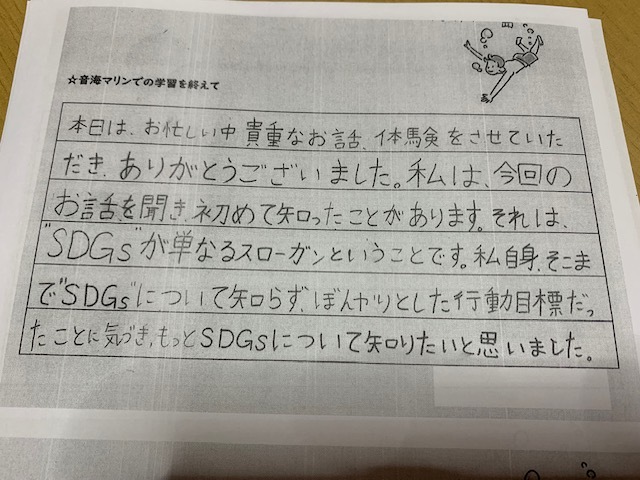 ☆音海マリンでの学習を終えて
本日は、お忙しい中貴重なお話、体験をさせていた
だき、ありがとうございました。私は、今回の
お話を聞き、初めて知ったことがあります。それは、
"SDGs"が単なるスローガンということです。私自身、そこま
で"SDGs"について知らず、ぼんやりとした行動目標だっ
たことに気づき、もっとSDGsについて知りたいと思いました。